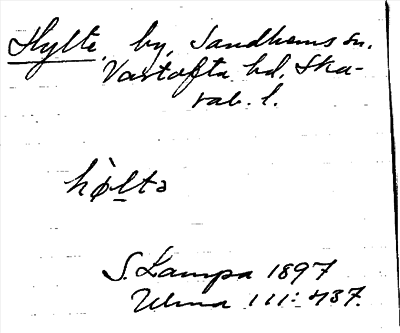 Hylte, by, Sandhems sn.
Vartofta hd, Ska-
rab. l.
hø̀ltə
S. Lampa 1897
Ulma 111:437.